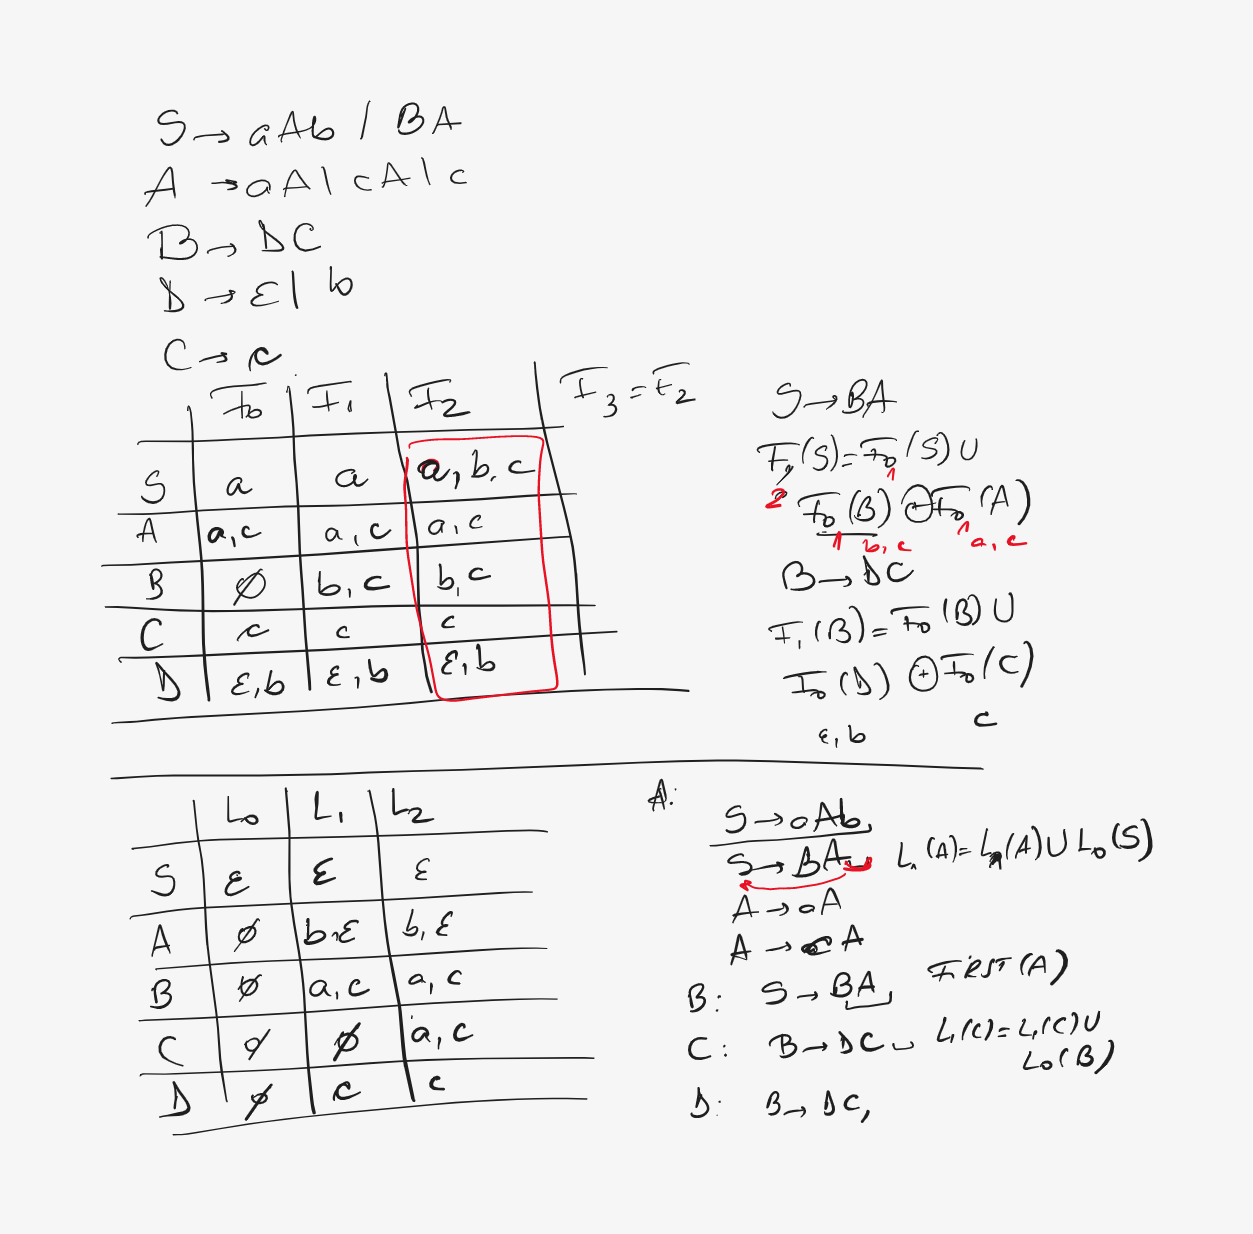 S → aAb / BA
A → aA | cA | c
B → DC
D → ε | b
C → c
F0 F1 F2 F3 = F2
S a a a, b, c
A a, c a, c a, c
B ∅ b, c b, c
C c c c
D ε, b ε, b ε, b
S → BA
F1 (S) = F0 (S) ∪
1
2 F0 (B) ⊕ F0 (A)
1 b, c 1 a, c
B → DC
F1 (B) = F0 (B) ∪
F0 (D) ⊕ F0 (C)
ε, b c
L0 L1 L2
S ε ε ε
A ∅ b, ε b, ε
B ∅ a, c a, c
C ∅ ∅ a, c
D ∅ c c
A:
S → aAb
S → BA L1 (A) = L1 (A) ∪ L0 (S)
A → aA
A → cA
B: S → BA FIRST (A)
C: B → DC L1 (C) = L1 (C) ∪
L0 (B)
D: B → DC,